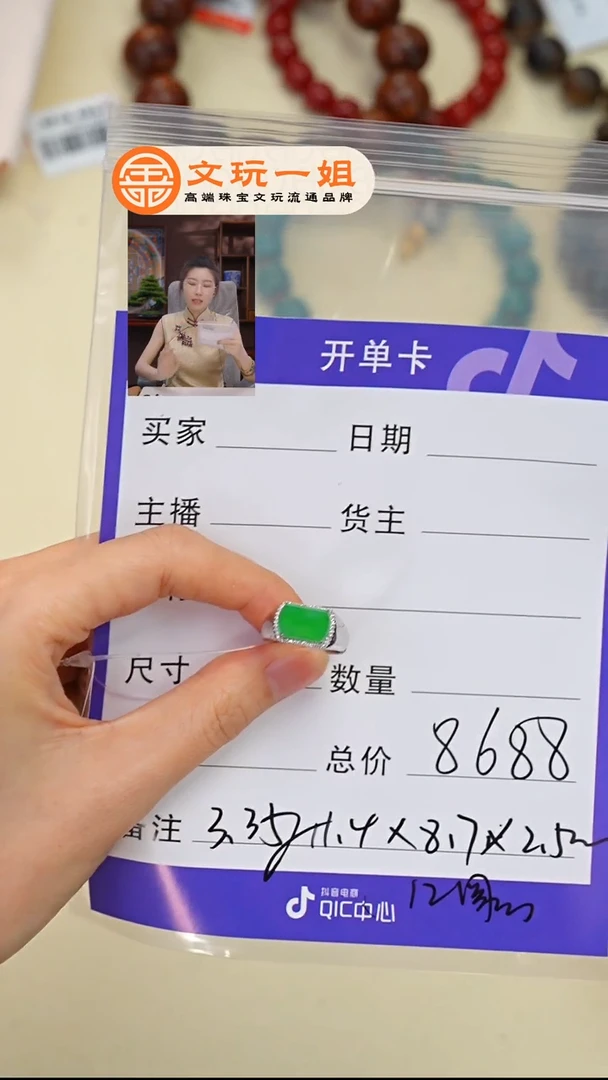 文玩一姐
高端珠宝文玩流通品牌
开单卡
买家 日期
主播 货主
尺寸 数量
总价 8688
备注 3.35g 11.4×8.7×2.5
抖音电商
QIC中心
12圈口